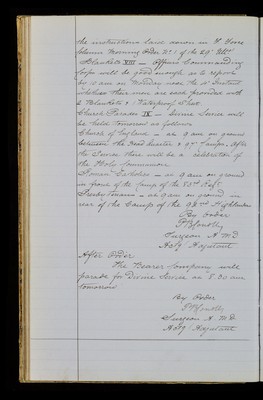 the instructions laid down in H. Force
Column Morning Order No 1 of the 29th Ulto.
Blankets VIII — Officers Commanding
Corps will be good enough as to report
by 10 am on Monday next the 1st Instant
whether their men are each provided with
2 Blankets & 1 Waterproof Sheet.
Church Parades IX — Divine Service will
be held tomorrow as follows
Church of England — at 9 am on ground
between the Head Quarters & 97th Camps. After
the Service there will be a celebration of
the Holy Communion.
Roman Catholics — at 9 am on ground
in front of the Camp of the 83rd Regt.
Presbyterians — at 9 am on ground in
rear of the Camp of the 92nd Highlanders
By Order
Surgeon A.M.D
Actg Adjutant
After Order
The Bearer Company will
parade for Divine Service at 8.30 am
tomorrow
By Order
Surgeon A.M.D.
Actg Adjutant